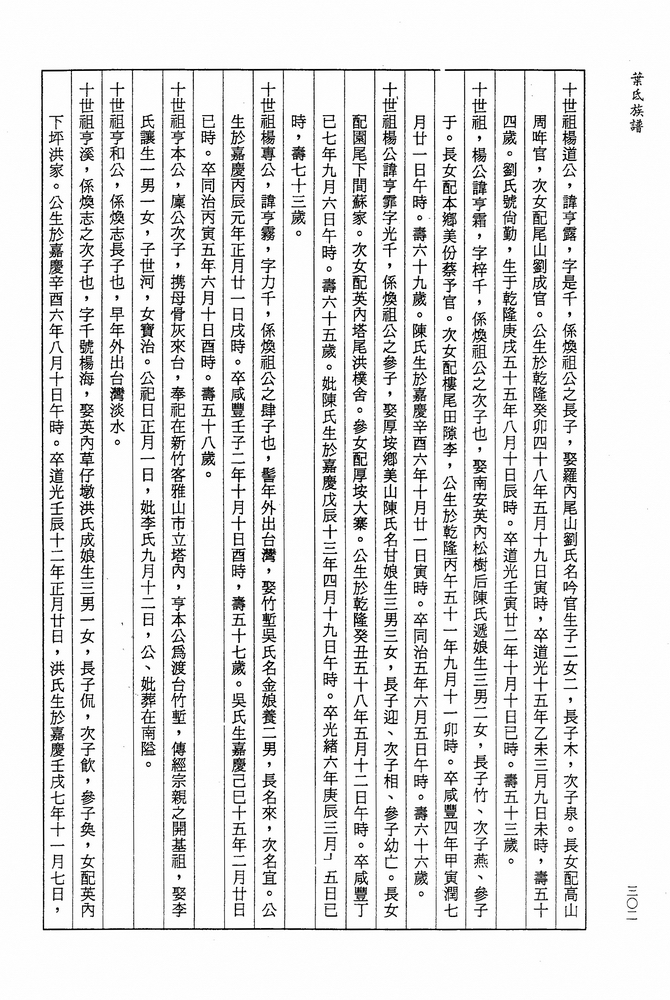 葉氏族譜
三〇二
十世祖楊道公，諱亨露，字是千，係煥祖公之長子，娶羅內尾山劉氏名吟官生子二女二，長子木，次子泉。長女配高山
周哖官，次女配尾山劉成官。公生於乾隆癸卯四十八年五月十九日寅時，卒道光十五年乙未三月九日未時，壽五十
四歲。劉氏號尙勤，生于乾隆庚戌五十五年八月十日辰時。卒道光壬寅廿二年十月十日巳時。壽五十三歲。
十世祖，楊公諱亨霜，字梓千，係煥祖公之次子也，娶南安英內松樹后陳氏遞娘生三男二女，長子竹、次子燕、參子
于。長女配本鄉美份蔡予官。次女配樓尾田隙李，公生於乾隆丙午五十一年九月十一卯時。卒咸豐四年甲寅潤七
月廿一日午時。壽六十九歲。陳氏生於嘉慶辛酉六年十月廿一日寅時。卒同治五年六月五日午時。壽六十六歲。
十世祖楊公諱亨霏字光千，係煥祖公之參子，娶厚垵鄉美山陳氏名甘娘生三男三女，長子迎、次子相、參子幼亡。長女
配園尾下間蘇家。次女配英內塔尾洪樸舍。參女配厚垵大寨。公生於乾隆癸丑五十八年五月十二日午時。卒咸豐丁
巳七年九月六日午時。壽六十五歲。妣陳氏生於嘉慶戊辰十三年四月十九日午時。卒光緒六年庚辰三月」五日巳
時，壽七十三歲。
十世祖楊專公，諱亨霧，字力千，係煥祖公之肆子也，髻年外出台灣，娶竹塹吳氏名金娘養二男，長名來，次名宜。公
生於嘉慶丙辰元年正月廿一日戌時。卒咸豐壬子二年十月十日酉時，壽五十七歲。吳氏生嘉慶己巳十五年二月廿日
巳時。卒同治丙寅五年六月十日酉時。壽五十八歲。
十世祖亨本公，廩公次子，携母骨灰來台，奉祀在新竹客雅山市立塔內，亨本公爲渡台竹塹，傳經宗親之開基祖，娶李
氏讓生一男一女，子世河，女寶治。公祀日正月一日，妣李氏九月十二日，公、妣葬在南隘。
十世祖亨和公，係煥志長子也，早年外出台灣淡水。
十世祖亨溪，係煥志之次子也，字千號楊海，娶英內草仔墩洪氏成娘生三男一女，長子侃，次子飲，參子奐，女配英內
下坪洪家。公生於嘉慶辛酉六年八月十日午時。卒道光壬辰十二年正月廿日，洪氏生於嘉慶壬戌七年十一月七日，